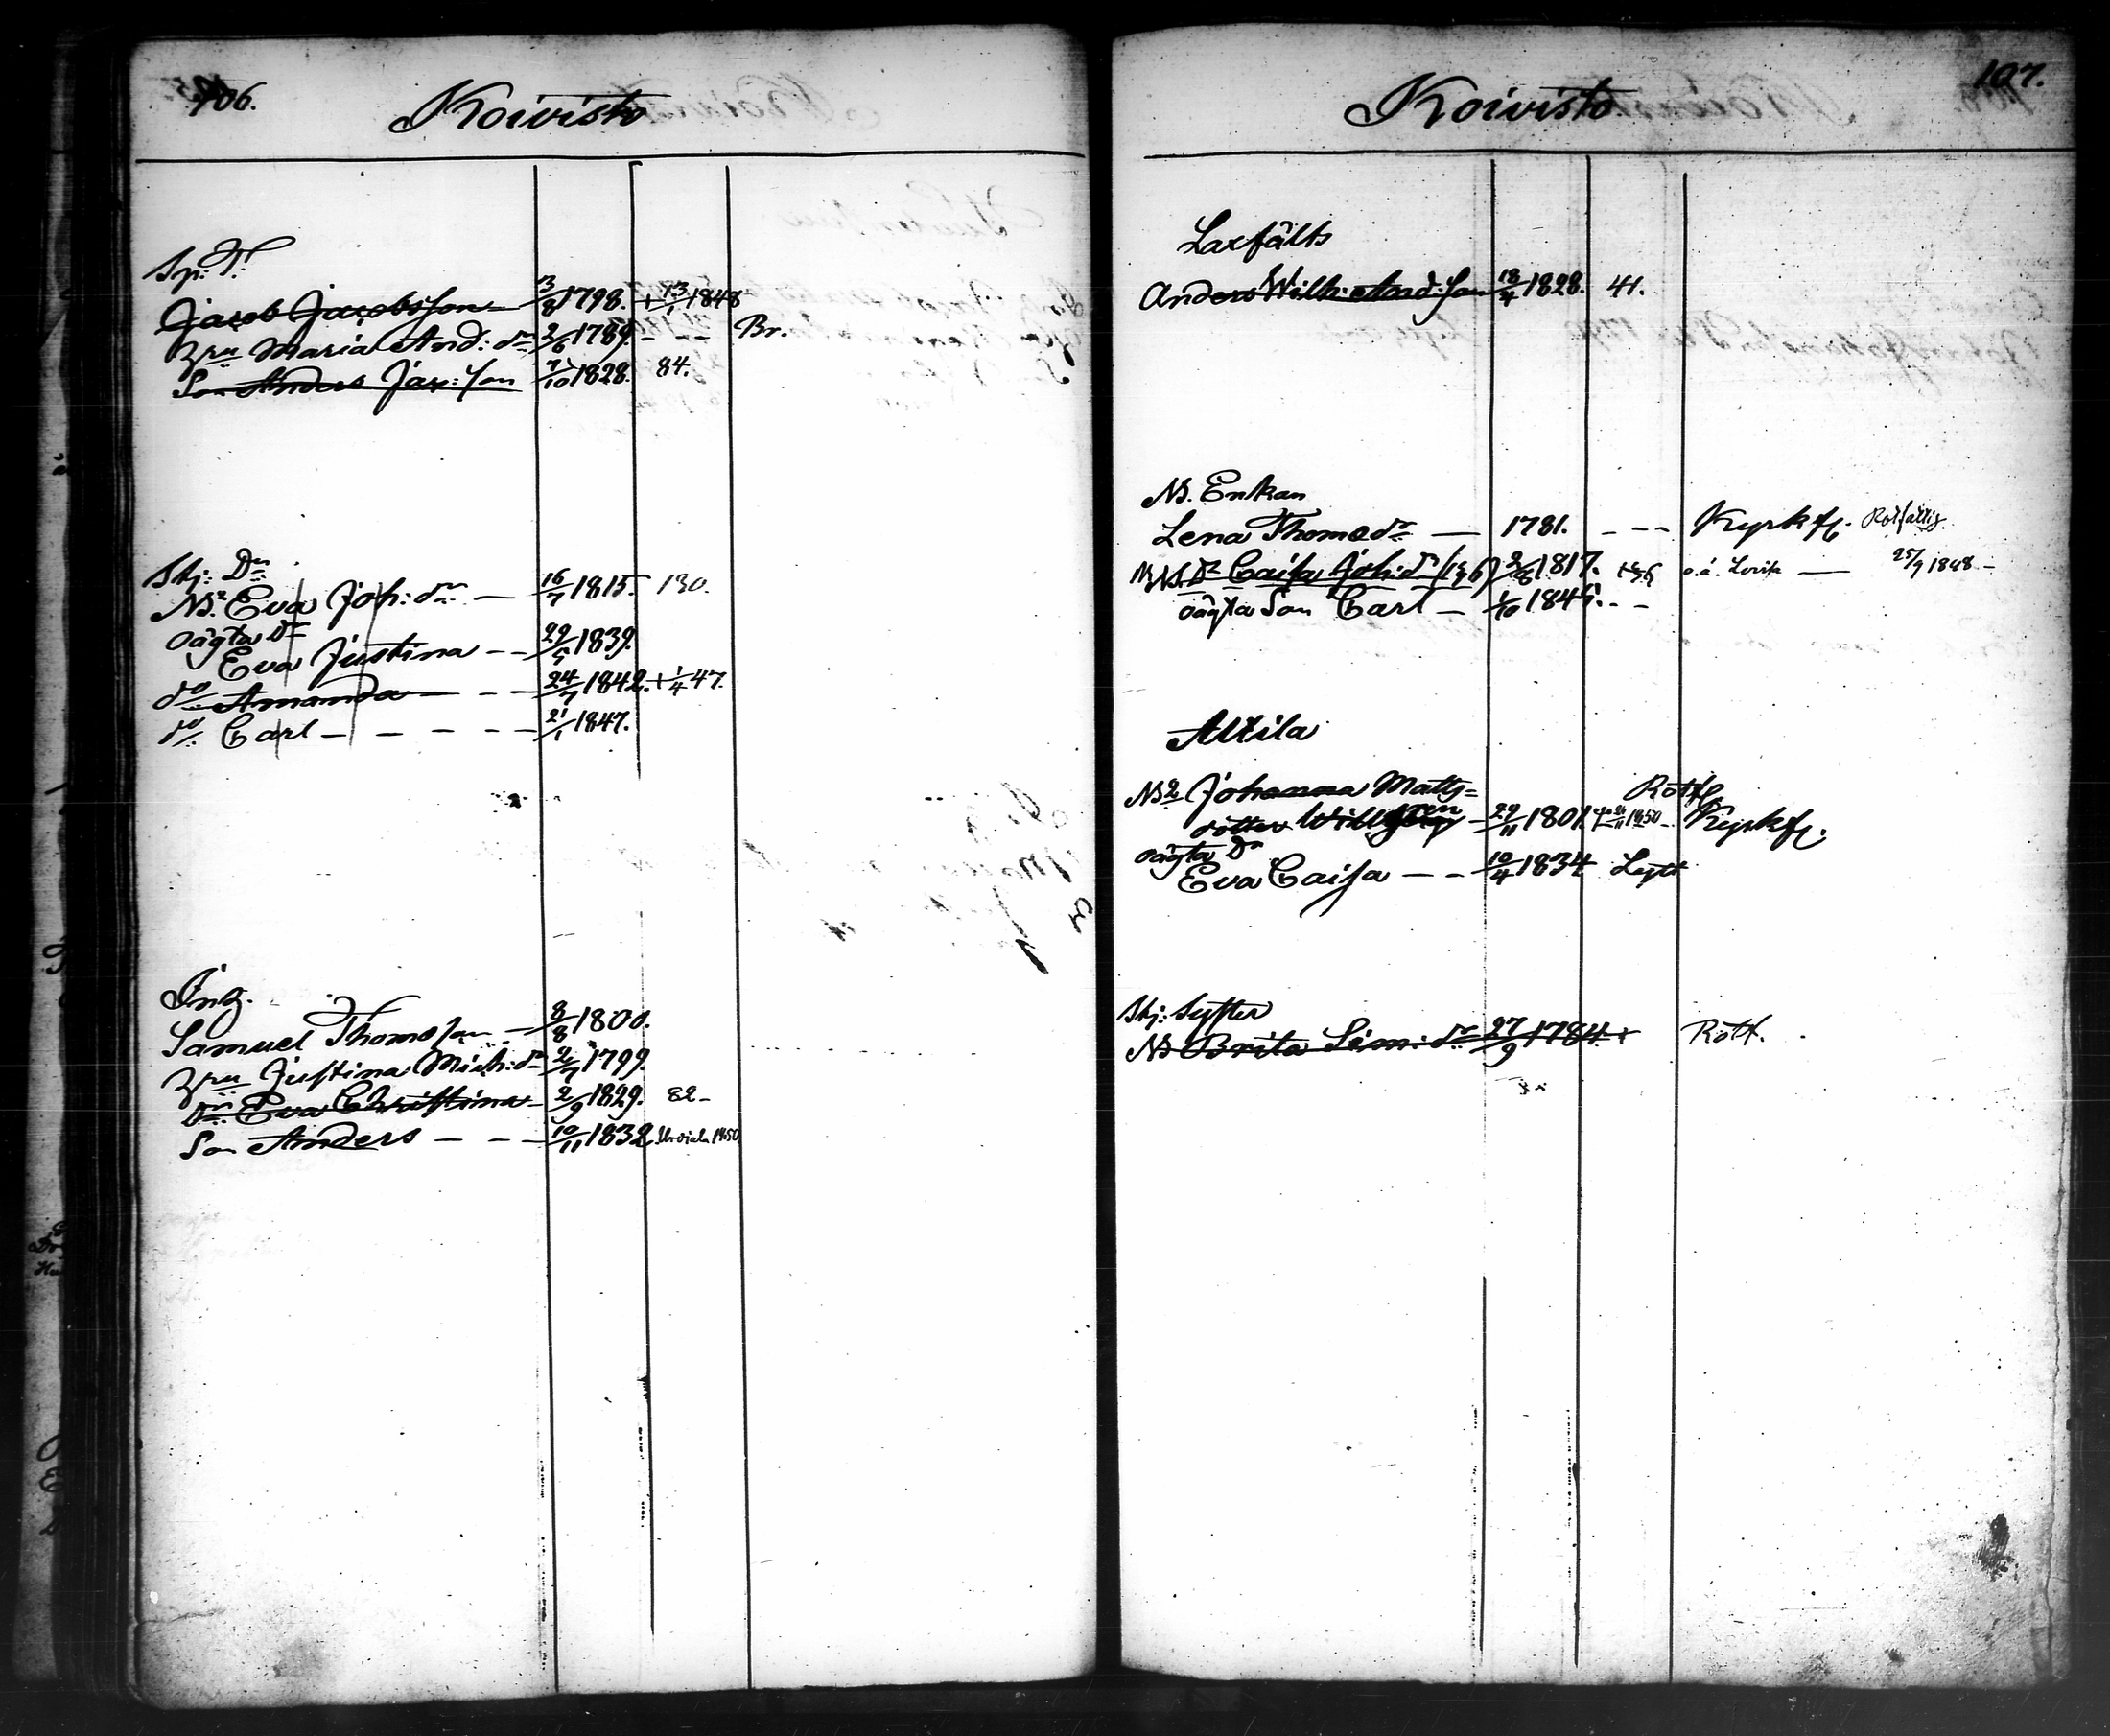 106.
Koivisto
Sp: T:
Jacob Jacobsson 3/8 1798. + 13/1 1848
Maria And: dr 2/6 1789. - - - Br.
Son Anders Jac: son 7/10 1828. 84.
Stj: Dr
Eva Joh: dr — 16/7 1815. 130.
oägta Dr
Eva Justina - - 22/5 1839.
do Amanda — - - 24/7 1842. + 1/4 47.
do Carl - - - - - 21/1 1847.
Inh.
Samuel Thomasson — 8/8 1800.
Justina Mich: dr 2/7 1799.
Dr Eva Christina - 2/9 1829. 82-
Son Anders - - - 10/11 1832 1850
107.
Koivisto
Laxfälts
Anders Wilh: And: son 13/4 1828. 41.
NB. Enkan
Lena Thomædr — 1781. - - - Kyrkf. Rotfattig.
Dr Caisa Joh: dr (136) 2/8 1817. 136 — 25/9 1848 -
oägta Son Carl - 1/10 1845. - -
Attila
Johanna Matts=
dotter - 22/11 1801. 1850 - Kyrkf.
Rotf.
oägta Dr
Eva Caisa - - 10/4 1834
Stj: Syster
NB Brita Sim: dr 27/9 1784. + Rotf.